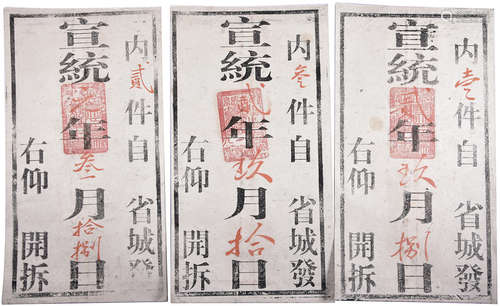 内貳件自 省城發
宣統年叁月拾捌日
右仰 開拆
内叁件自 省城發
宣統貳年玖月拾日
右仰 開拆
内壹件自 省城發
宣統貳年玖月捌日
右仰 開拆